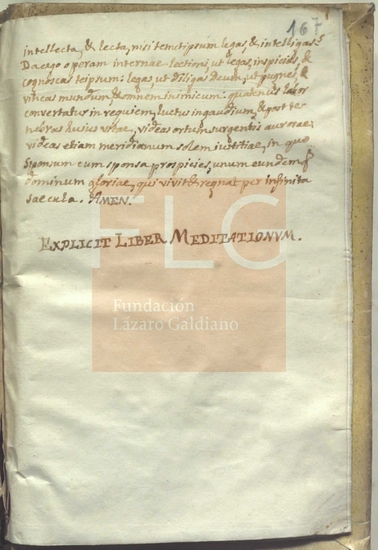 167
intellecta, & lecta, nisi temetipsum legas, & intelligas?
Da ergo operam internae lectioni, ut legas, inspicias, &
cognoscas teipsum: legas, ut diligas Deum, ut pugnes, &
vincas mundum, & omnem inimicum: quatenus labor
convertatur in requiem, luctus in gaudium, & post te-
nebras huius vitae, videas ortum surgentis aurorae,
videas etiam meridianum solem iustitiae, in quo
Sponsum cum sponsa prospicies, unum eundemq
dominum gloriae, qui vivit & regnat per infinita
saecula. AMEN.
EXPLICIT LIBER MEDITATIONVM.
FLG
Fundación
Lázaro Galdiano